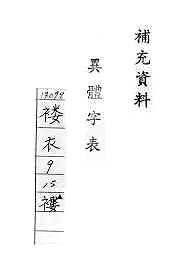 補充資料
異體字表
13099
褛
衣
9
15
褸